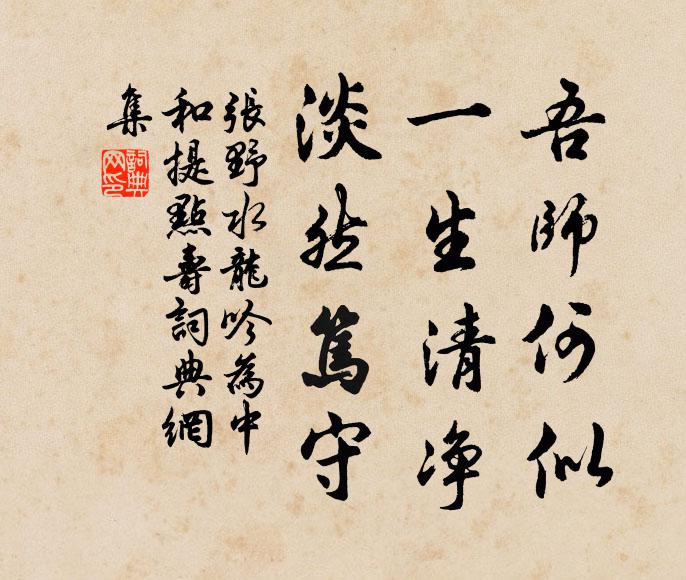 吾師何似
一生清净
淡然篤守
張野水龍吟為中
和提點壽詞典網
集
詞典網印